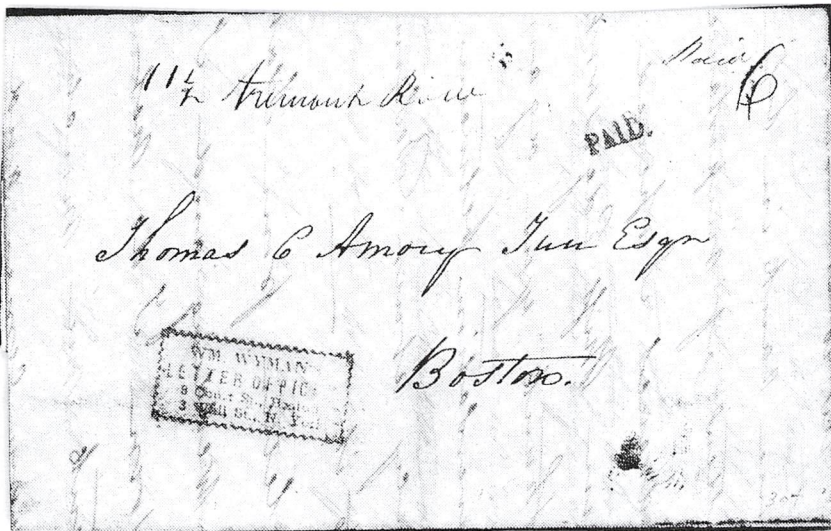 Paid 6
11½ Tremont Row
PAID.
Thomas C Amory Jun Esqr
Boston.
WM. WYMAN
LETTER OFFICE
8 Court St., Boston
3 Wall St., N. York